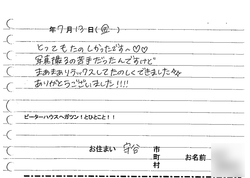 年7月13日(金)
とってもたのしかったです〜♡♡
写真撮るの苦手だったんですけど
まあまありラックスしてたのしくできました
ありがとうございました!!!!
ピーターハウスへガツン!とひとこと!!
お住まい 守谷 市 お名前
町
村